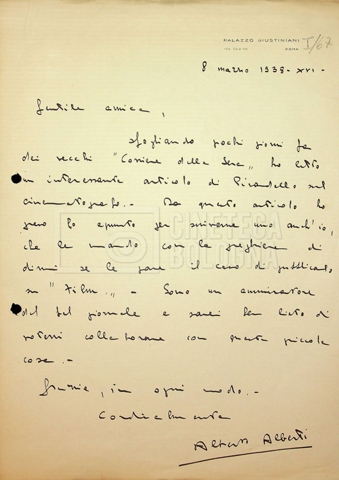 PALAZZO GIUSTINIANI
ROMA
I/67
8 marzo 1938 - XVI -
Gentile amica,
sfogliando pochi giorni fa
dei vecchi "Corriere della Sera" ho letto
un interessante articolo di Pirandello sul
cinematografo. - Da questo articolo ho
preso lo spunto per scriverne uno anch'io,
che le mando con la preghiera di
dirmi se le pare il caso di pubblicarlo
su "Film". - Sono un ammiratore
del bel giornale e sarei ben lieto di
potervi collaborare con questa piccola
cosa. -
Grazie, in ogni modo. -
Cordialmente
Alberto Alberti
CINETECA
BOLOGNA